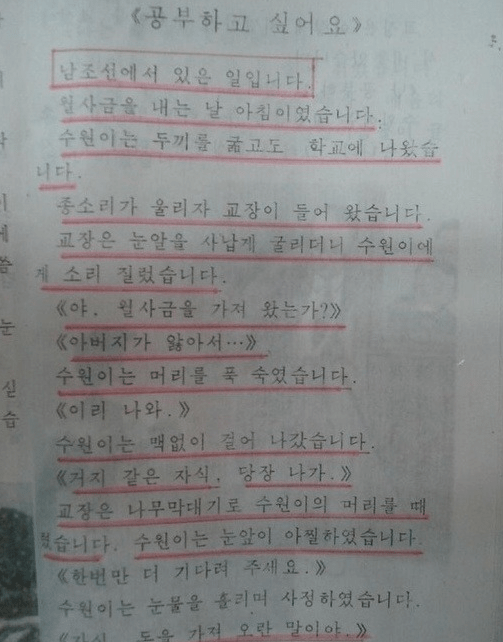 《공부하고 싶어요》
남조선에서 있은 일입니다.
월사금을 내는 날 아침이였습니다.
수원이는 두끼를 굶고도 학교에 나왔습
니다.
종소리가 울리자 교장이 들어 왔습니다.
교장은 눈알을 사납게 굴리더니 수원이에
게 소리 질렀습니다.
《야, 월사금을 가져 왔는가?》
《아버지가 앓아서…》
수원이는 머리를 푹 숙였습니다.
《이리 나와.》
수원이는 맥없이 걸어 나갔습니다.
《거지 같은 자식, 당장 나가.》
교장은 나무막대기로 수원이의 머리를 때
렸습니다. 수원이는 눈앞이 아찔하였습니다.
《한번만 더 기다려 주세요.》
수원이는 눈물을 흘리며 사정하였습니다.
돈을 가져 오란 말이야.》